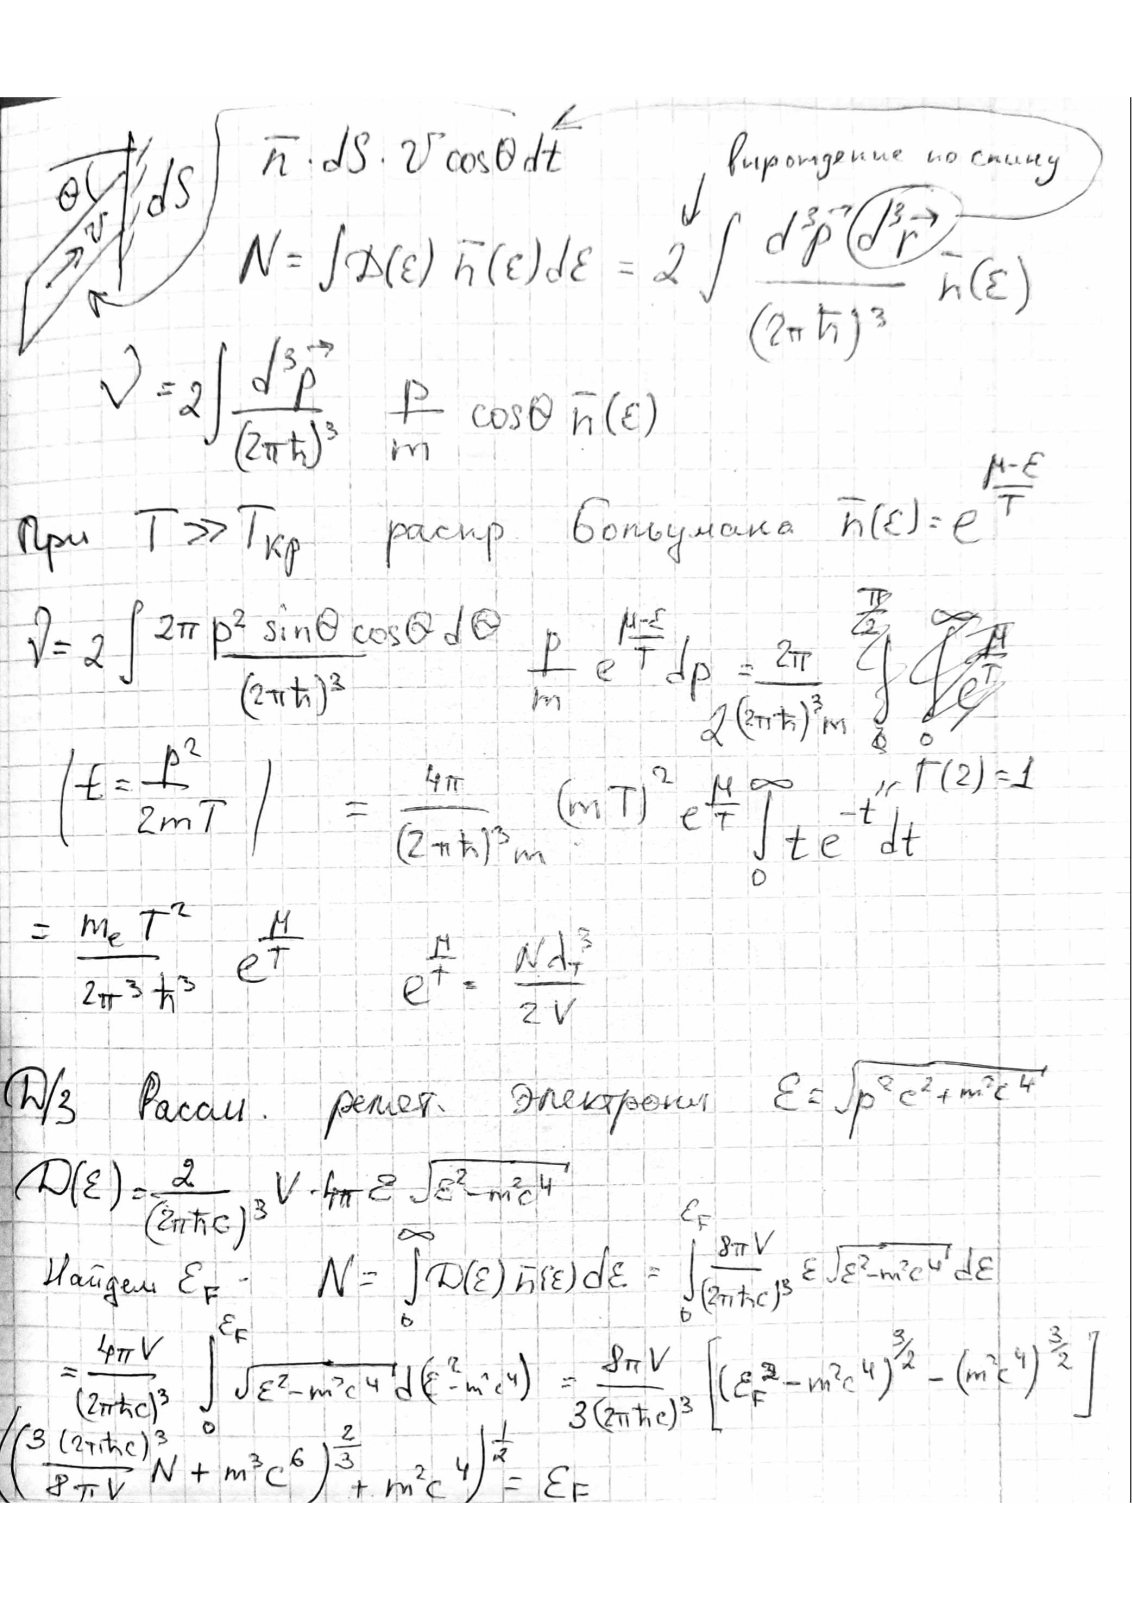 n̄ · dS · v cosθ dt
θ v dS
вырождение по спину
N = ∫ D(ε) n̄(ε) dε = 2 ∫ d³p⃗ d³r⃗ / (2πħ)³ n̄(ε)
ν = 2 ∫ d³p⃗ / (2πħ)³ p/m cosθ n̄(ε)
При T ≫ T_кр распр Больцмана n̄(ε) = e^((μ-ε)/T)
ν = 2 ∫ 2π p² sinθ cosθ dθ / (2πħ)³ p/m e^((μ-ε)/T) dp = 2π / 2(2πħ)³m
| t = p²/2mT | = 4π / (2πħ)³m (mT)² e^(μ/T) ∫₀^∞ t e^(-t) dt " Γ(2) = 1
= m_e T² / 2π³ħ³ e^(μ/T) e^(μ/T) = N d_T³ / 2V
Д/З Рассм. релят. электроны ε = √(p²c² + m²c⁴)
D(ε) = 2 / (2πħc)³ V · 4π ε √(ε² - m²c⁴)
Найдем ε_F · N = ∫₀^∞ D(ε) n̄(ε) dε = ∫₀^(ε_F) 8πV / (2πħc)³ ε √(ε² - m²c⁴) dε
= 4πV / (2πħc)³ ∫₀^(ε_F) √(ε² - m²c⁴) d(ε² - m²c⁴) = 8πV / 3(2πħc)³ [(ε_F² - m²c⁴)^(3/2) - (m²c⁴)^(3/2)]
((3(2πħc)³ / 8πV N + m³c⁶)^(2/3) + m²c⁴)^(1/2) = ε_F